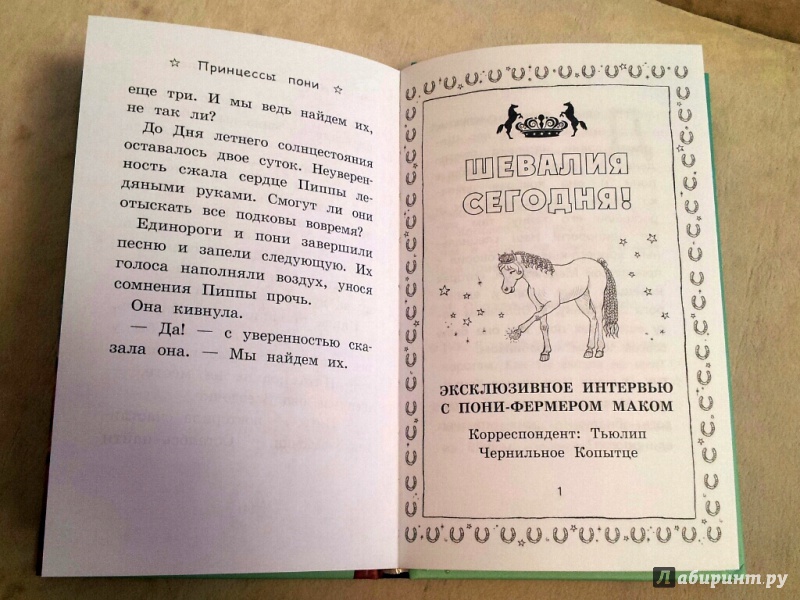 ☆ Принцессы пони ☆
еще три. И мы ведь найдем их,
не так ли?
До Дня летнего солнцестояния
оставалось двое суток. Неуверен-
ность сжала сердце Пиппы ле-
дяными руками. Смогут ли они
отыскать все подковы вовремя?
Единороги и пони завершили
песню и запели следующую. Их
голоса наполняли воздух, унося
сомнения Пиппы прочь.
Она кивнула.
— Да! — с уверенностью ска-
зала она. — Мы найдем их.
ШЕВАЛИЯ
СЕГОДНЯ!
ЭКСКЛЮЗИВНОЕ ИНТЕРВЬЮ
С ПОНИ-ФЕРМЕРОМ МАКОМ
Корреспондент: Тьюлип
Чернильное Копытце
1
Лабиринт.ру